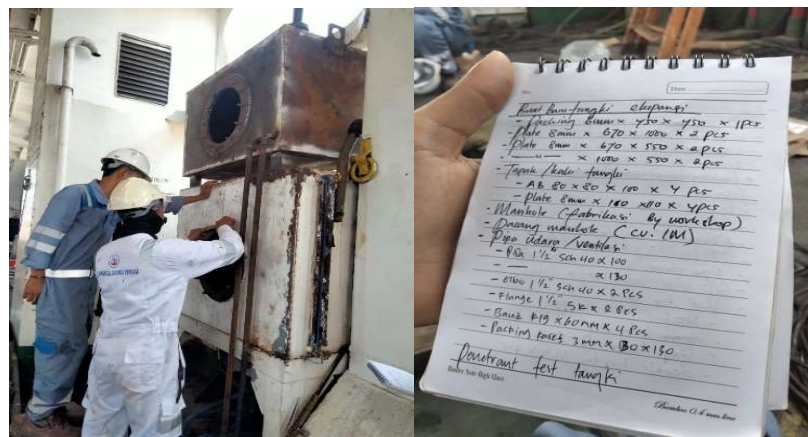 No.
Date
Buat Baru tangki ekspansi
- Packing 6mm x 450 x 450 x 1pcs
- Plate 8mm x 670 x 1000 x 2 pcs
- Plate 8mm x 670 x 550 x 2pcs
x 1000 x 550 x 2pcs
- Tapak / kaki tangki
- AB 80 x 80 x 100 x 4 pcs
- plate 8mm x 100 x 110 x 4pcs
- Manhole (fabrikasi by workshop)
- Pasang manhole (CV. IM)
- Pipa udara / ventilasi
- Pipa 1 1/2 sch 40 x 100
x 130
- Elbo 1 1/2 sch 40 x 2 Pcs
- Flange 1 1/2" 5K x 2 Pcs
- Baut x 60mm x 4 Pcs
- Packing karet 3mm x 130 x 130
Penetrant test tangki